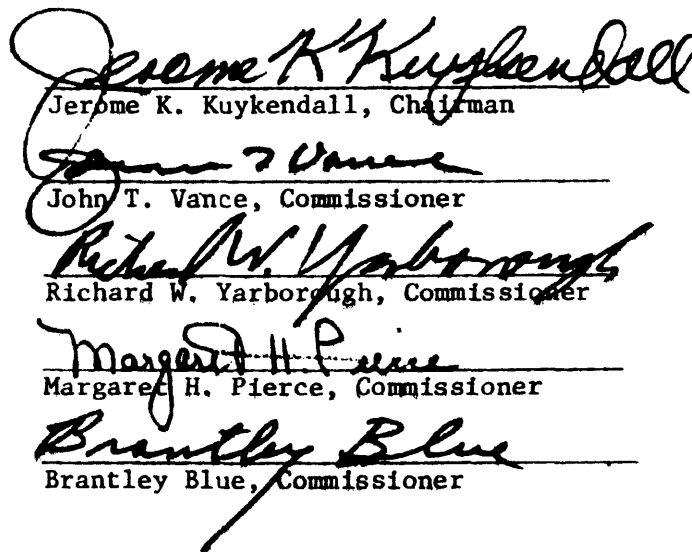 Jerome K Kuykendall
Jerome K. Kuykendall, Chairman
John T Vance
John T. Vance, Commissioner
Richard W. Yarborough
Richard W. Yarborough, Commissioner
Margaret H. Pierce
Margaret H. Pierce, Commissioner
Brantley Blue
Brantley Blue, Commissioner